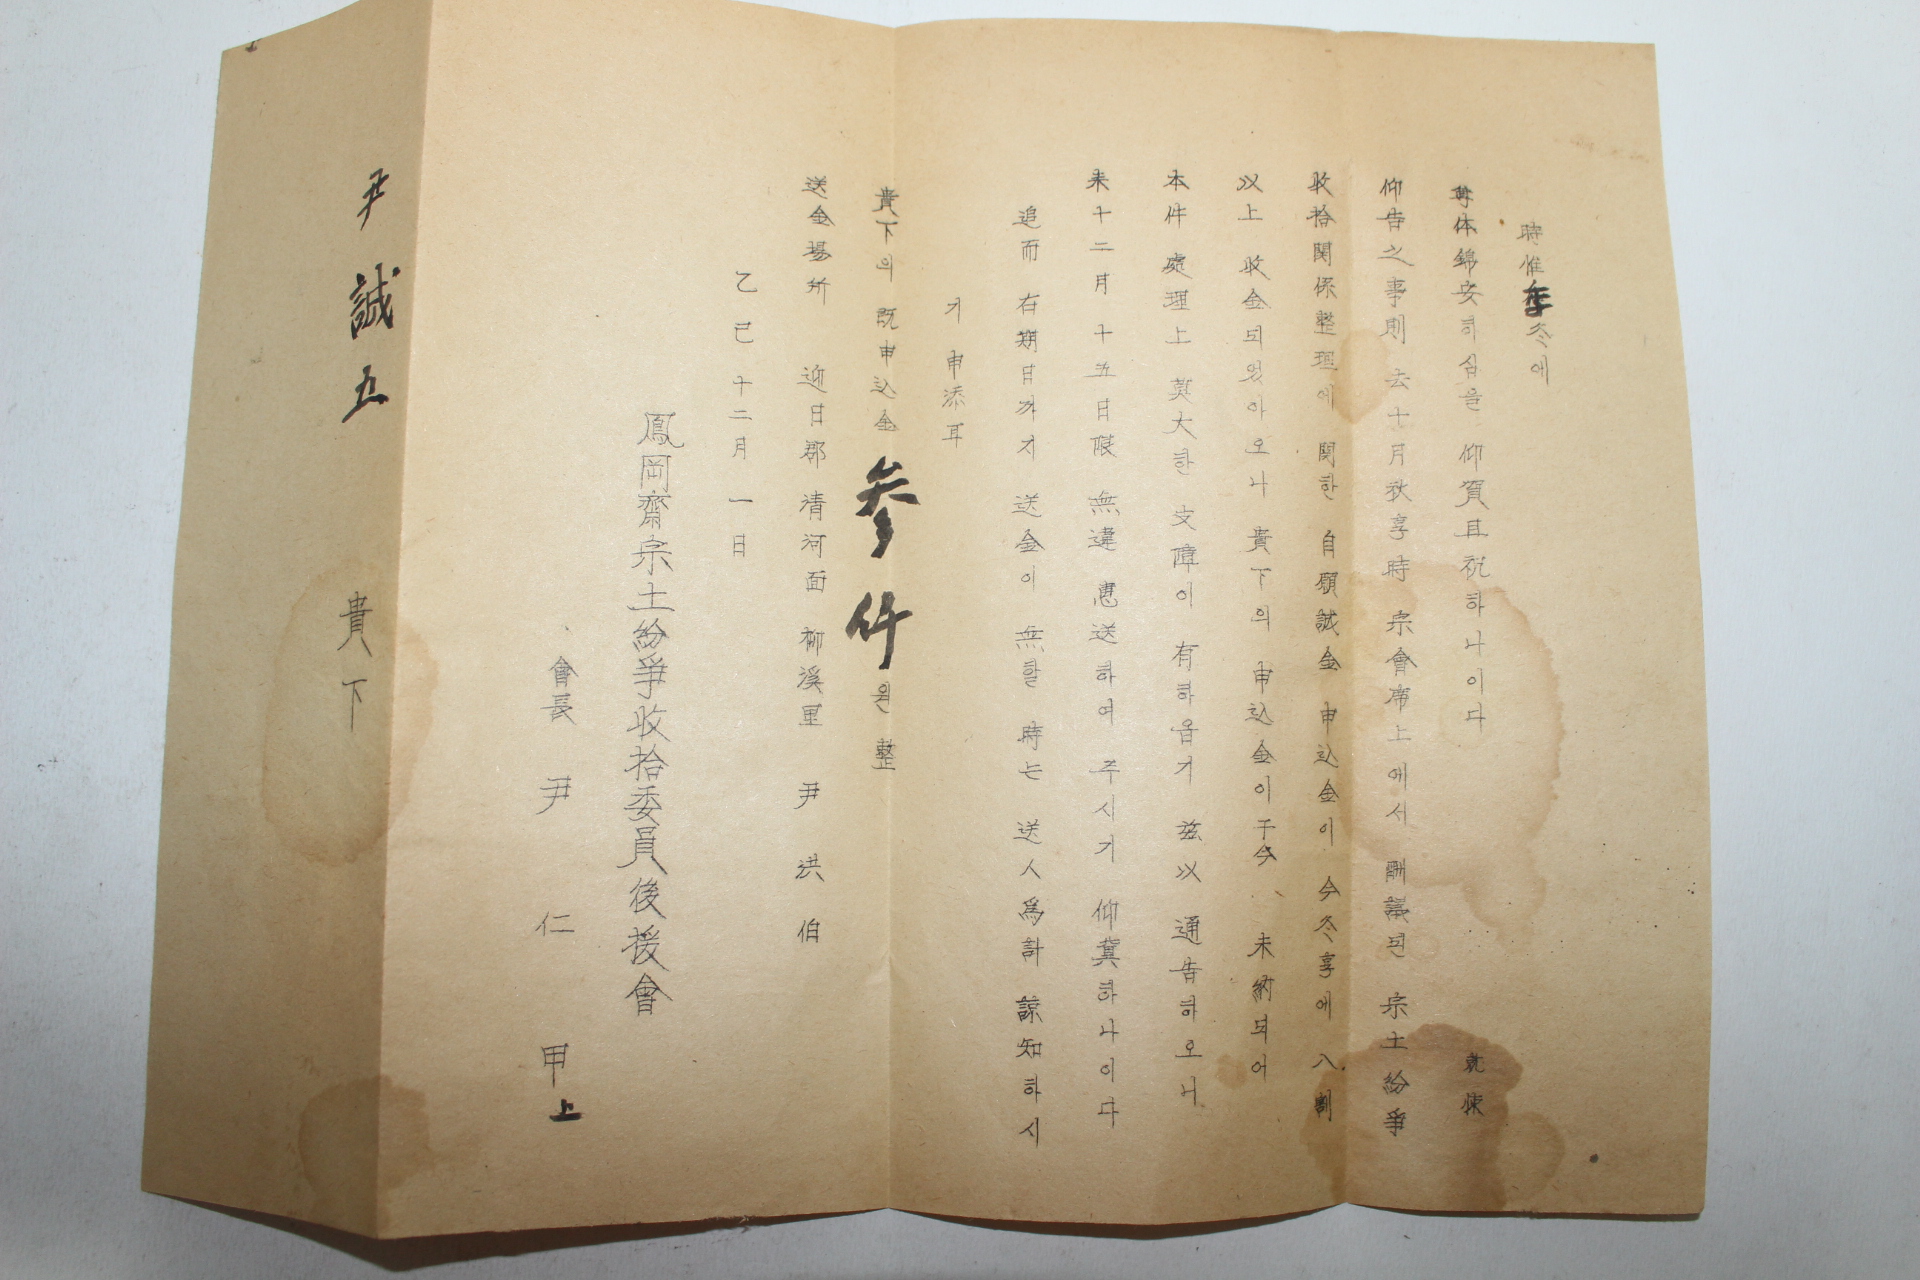 時惟季冬에
尊体錦安하심을 仰賀且祝하나이다 就悚
仰告之事則 去十月秋享時 宗會席上에서 酬議된 宗土紛爭
收拾関係整理에 関한 自願誠金 申込金이 今冬享에 八割
以上 收金되었아오나 貴下의 申込金이 于今 未納되어
本件處理上 莫大한 支障이 有하읍기 玆以 通告하오니
来十二月十五日限 無違 惠送하여 주시기 仰冀하나이다
追而 右期日까지 送金이 無할 時는 送人爲計 諒知하시
기 申添耳
貴下의 既申込金 參仟원整
送金場所 迎日郡 清河面 柳溪里 尹洪伯
乙巳十二月一日
鳳岡齋宗土紛爭收拾委員後援會
會長 尹仁甲 上
尹誠五 貴下